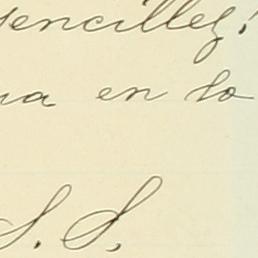 sencillez!
ua en lo
S. S.